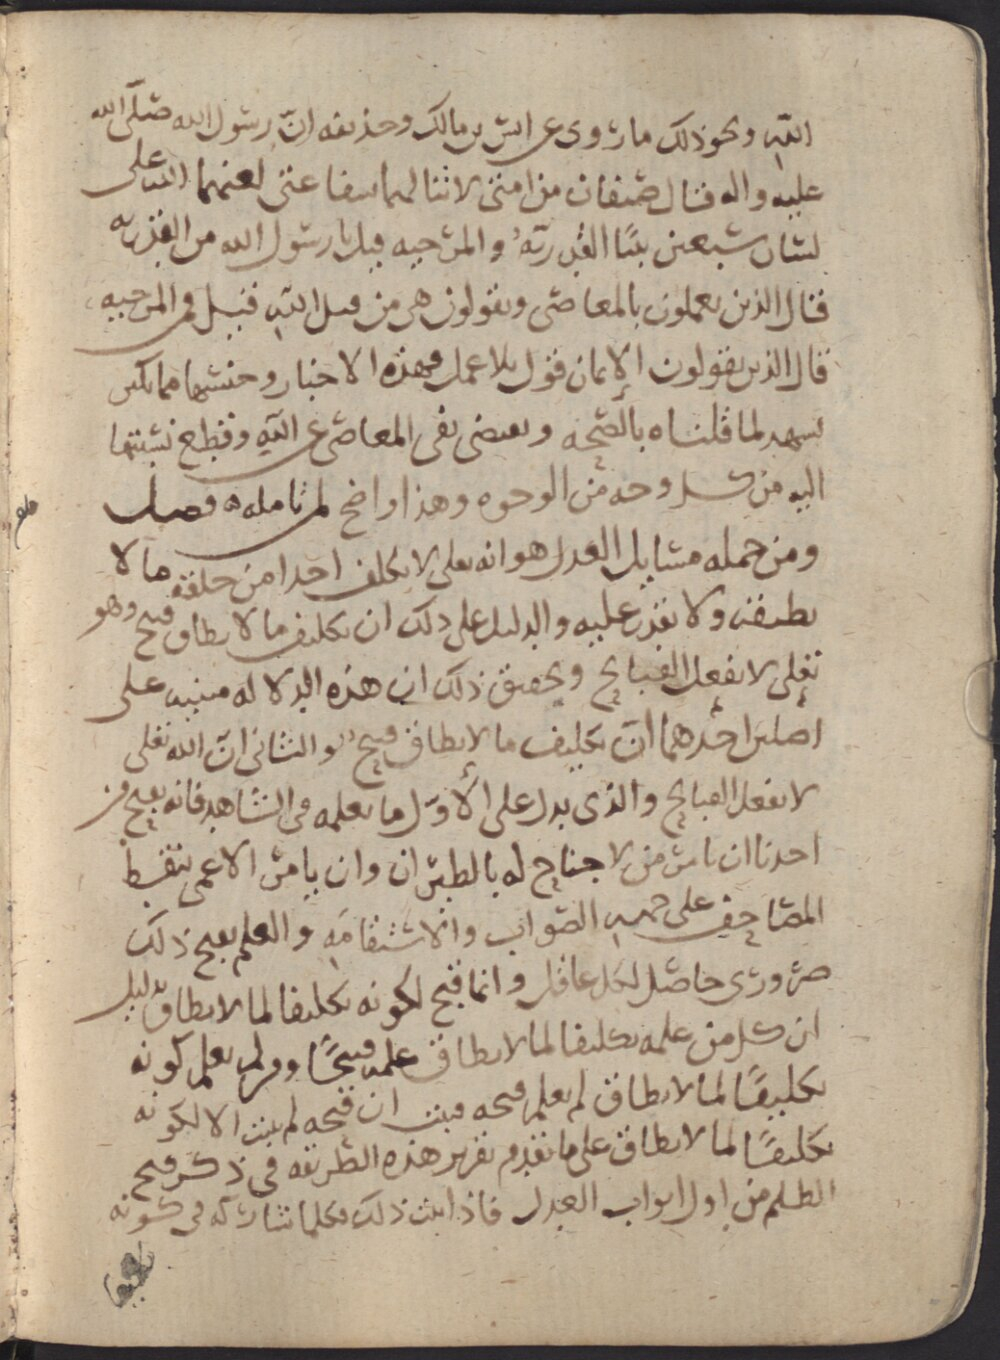 الله ونحو ذلك ما روي عن انس بن مالك وحذيفه انّ رسول الله صلّى الله
عليه واله قال صنفان من امتي لا تنالهما شفاعتي لعنهما الله على
لسان سبعين نبيًا القدريّة والمرجيه قيل يا رسول الله من القدريه
فقال الذين يعملون بالمعاصي ويقولون هي من قبل الله قيل فمن المرجيه
قال الذين يقولون الإيمان قول بلا عمل فهذه الاخبار وجنسها مما يكثر
يشهد لما قلناه بالصّحه ويقضي بنفي المعاصي عن الله وقطع نسبتها
اليه من كل وجه من الوجوه وهذا واضح لمن تامله ه فصل
ومن جمله مسايل العدل هو انه تعلى لا يكلف احدا من خلقه ما لا
يطيقه ولا يقدر عليه والدليل على ذلك ان تكليف ما لا يطاق قبيح وهو
تعلى لا يفعل القبايح وتحقيق ذلك ان هذه الدلاله مبنيه على
اصلين احدهما انّ تكليف ما لا يطاق قبيح والثاني انّ الله تعلى
لا يفعل القبايح والذي يدل على الأوّل ما نعلمه في الشاهد فانه يقبح من
احدنا ان يامر من لا جناح له بالطيران وان يامر الاعمى بنقط
المصاحف على جهه الصّواب والاستقامه والعلم بقبح ذلك
ضروري حاصل لكل عاقل وانما قبح لكونه تكليفا لما لا يطاق بدليل
ان كل من علمه تكليفا لما لا يطاق علمه قبيحًا ومن لم يعلم كونه
تكليفًا لما لا يطاق لم يعلم قبحه فثبت ان قبحه لم يثبت الا لكونه
تكليفًا لما لا يطاق على ما تقدم تقرير هذه الطّريقه في ذكر قبح
الظلم من اول ابواب العدل فاذا ثبت ذلك فكلما شاركه في كونه
تكليفا